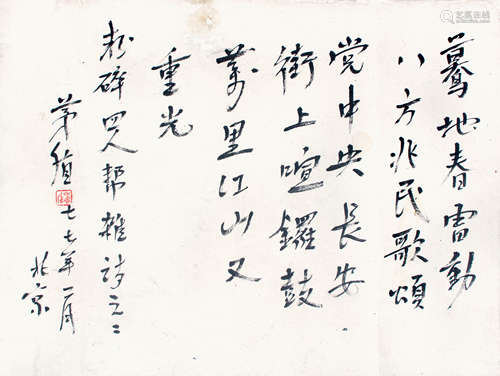 驀地春雷動
八方兆民歌頌
党中央長安
街上喧鑼鼓
萬里江山又
重光
粉碎四人帮雜詩之二
茅盾 七七年一月
北京